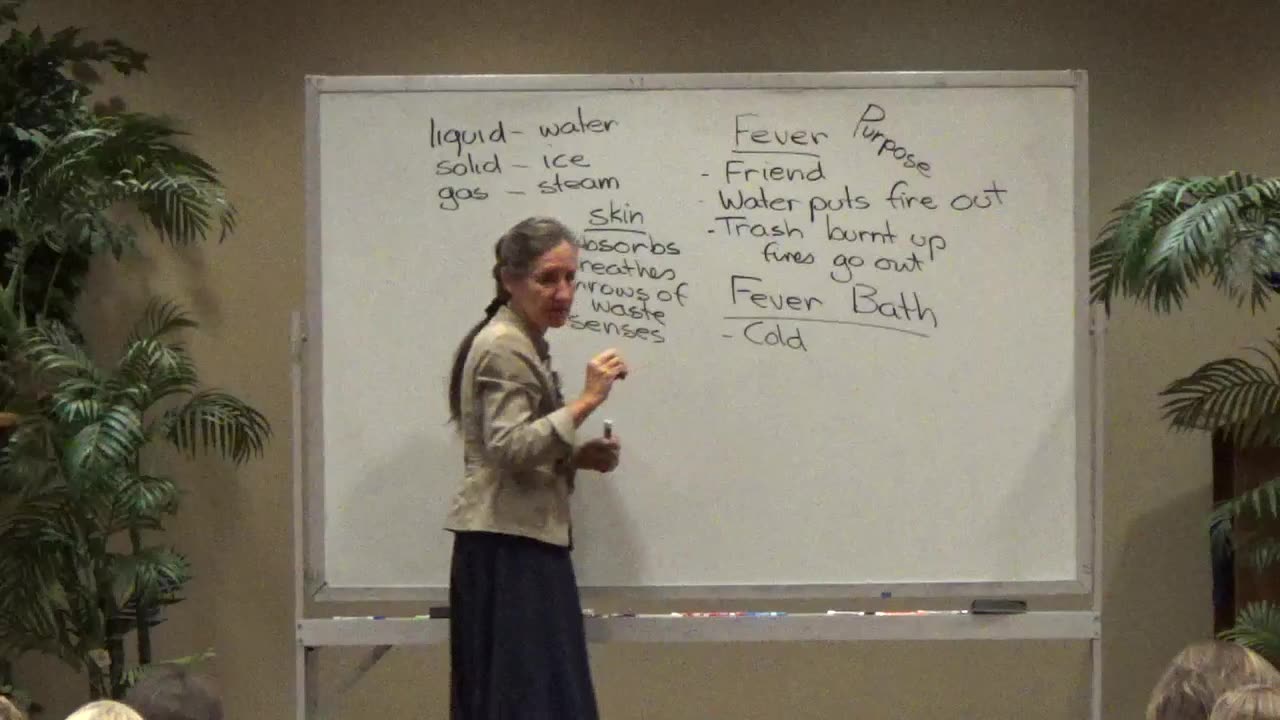 liquid - water
solid - ice
gas - steam
skin
bsorbs
reathes
hrows of
waste
senses
Fever Purpose
- Friend
- Water puts fire out
- Trash burnt up
fires go out
Fever Bath
- Cold